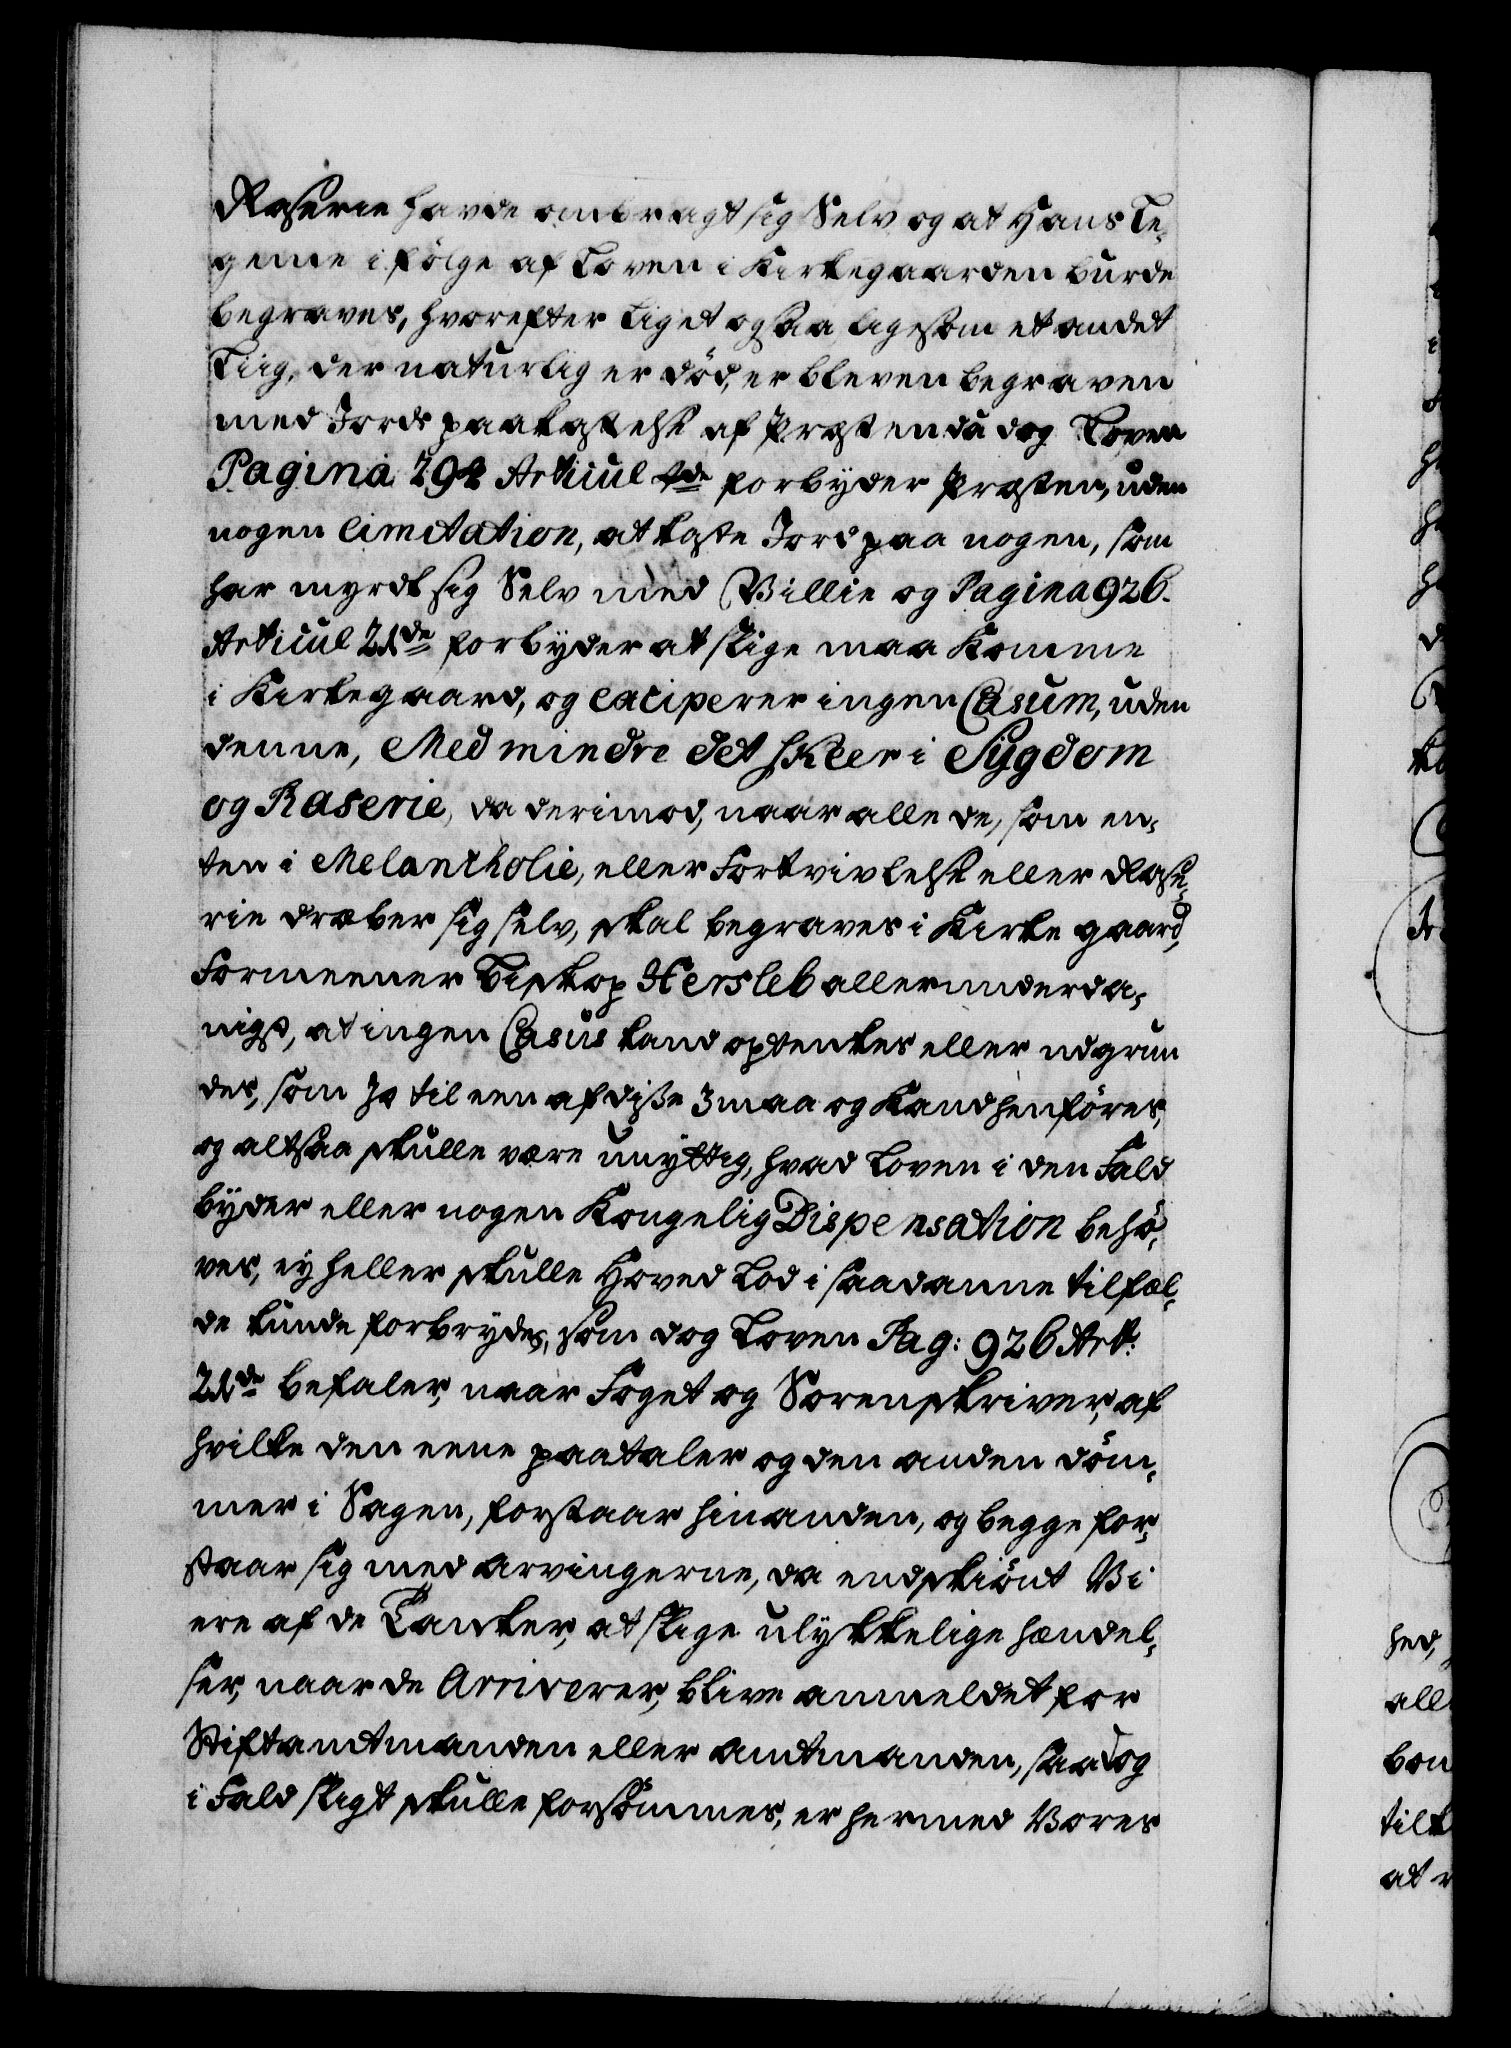 Raserie havde ombragt sig Selv og at Hans Le-
geme i følge af Loven i Kirkegaarden burde
begraves, hvorefter Liget ogsaa ligesom et andet
Liig, der naturlig er död, er bleven begraven
med Jords paakastelse af Præsten, da dog Loven
Pagina 292 Articul 4de forbyder Præsten, uden
nogen Limitation, at kaste Jord paa nogen, som
har myrdt sig Selv med Villie og Pagina 926.
Articul 21de forbyder at slige maa Komme
i Kirkegaard, og exciperer ingen Casum, uden
denne, Med mindre det skeer i Sygdom
og Raserie, da derimod, naar alle de, som en-
ten i Melancholie, eller Fortvivlelse eller Rase-
rie dræber sig selv, skal begraves i Kirke gaard,
Formeener Biskop Hersleb allerunderda-
nigst, at ingen Casus kand optenkes eller udgrun
des, som Jo til een af disse 3 maa og Kand henföres,
og altsaa skulle være unyttig, hvad Loven i den Fald
byder eller nogen Kongelig Dispensation behö-
ves, ey heller skulle Hoved Lod i saadanne tilfæl-
de kunde forbrydes, som dog Loven Pag: 926 Art:
21de befaler, naar Foget og Sorenskriver, af
hvilke den eene paataler og den anden döm-
mer i Sagen, forstaar hinanden, og begge for-
staar sig med Arvingerne, da endskiönt Vi
ere af de Tanker, at slige ulykkelige hændel-
ser, naar de Arriverer, blive anmeldet for
Stiftamtmanden eller Amtmanden, saa dog
i Fald sligt skulle forsömmes, er hermed Vores